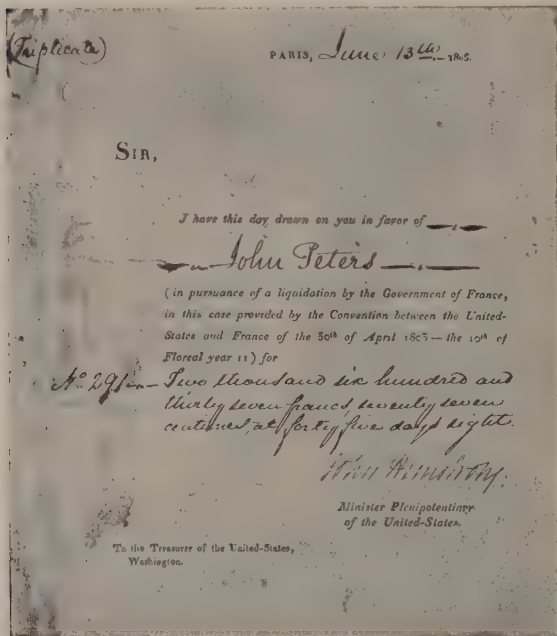 (Triplicate)
PARIS, June 13th — 1805.
SIR,
I have this day drawn on you in favor of
John Peters
(in pursuance of a liquidation by the Government of France,
in this case provided by the Convention between the United-
States and France of the 30th of April 1803 — the 10th of
Floreal year 11) for
No. 291 — Two thousand six hundred and
thirty seven francs, twenty seven
centimes, at forty five days sight.
John Armstrong.
Minister Plenipotentiary
of the United-States.
To the Treasurer of the United-States,
Washington.